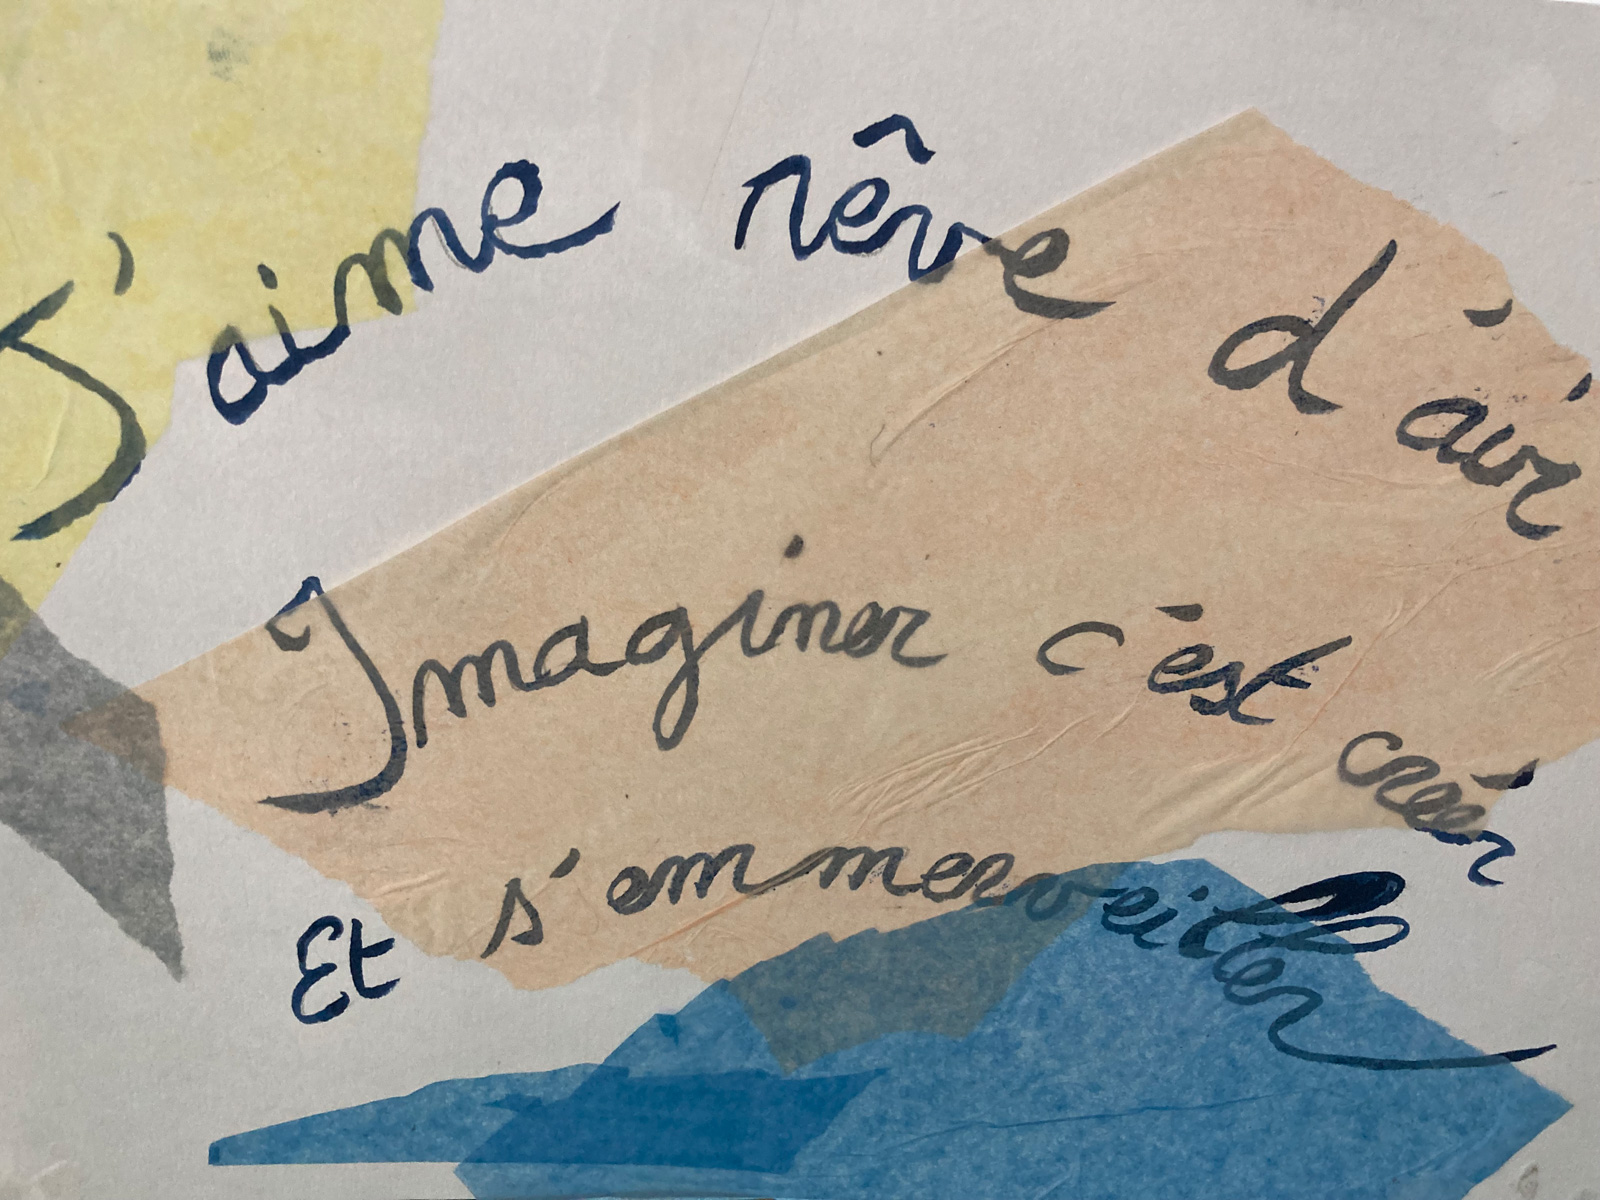 J'aime rêve d'air
Imaginer c'est créer
Et s'emmerveiller